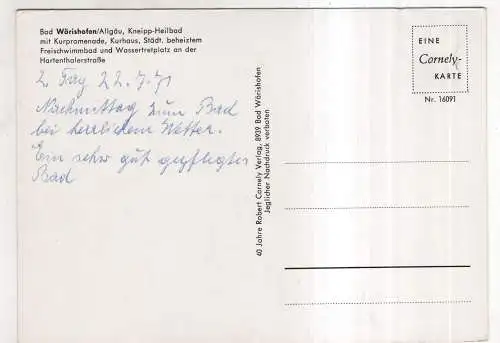 Bad Wörishofen/Allgäu, Kneipp-Heilbad
mit Kurpromenade, Kurhaus, Städt. beheiztem
Freischwimmbad und Wassertretplatz an der
Hartenthalerstraße
2. Tag 22.7.71
Nachmittag zum Bad
bei herrlichem Wetter.
Ein sehr gut gepflegtes
Bad
40 Jahre Robert Cornely Verlag, 8939 Bad Wörishofen
Jeglicher Nachdruck verboten
EINE
Cornely-
KARTE
Nr. 16091